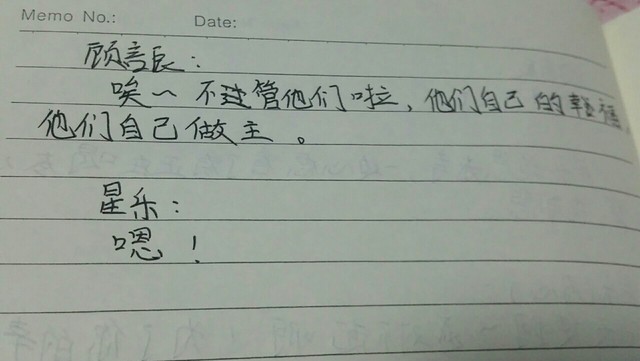 Memo No.: Date:
顾言辰：
唉~ 不过管他们啦，他们自己的幸福
他们自己做主。
星乐：
嗯！